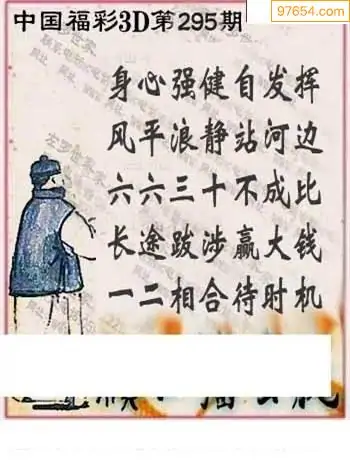 97654.com
中国福彩3D第295期
身心强健自发挥
风平浪静站河边
六六三十不成比
长途跋涉赢大钱
一二相合待时机